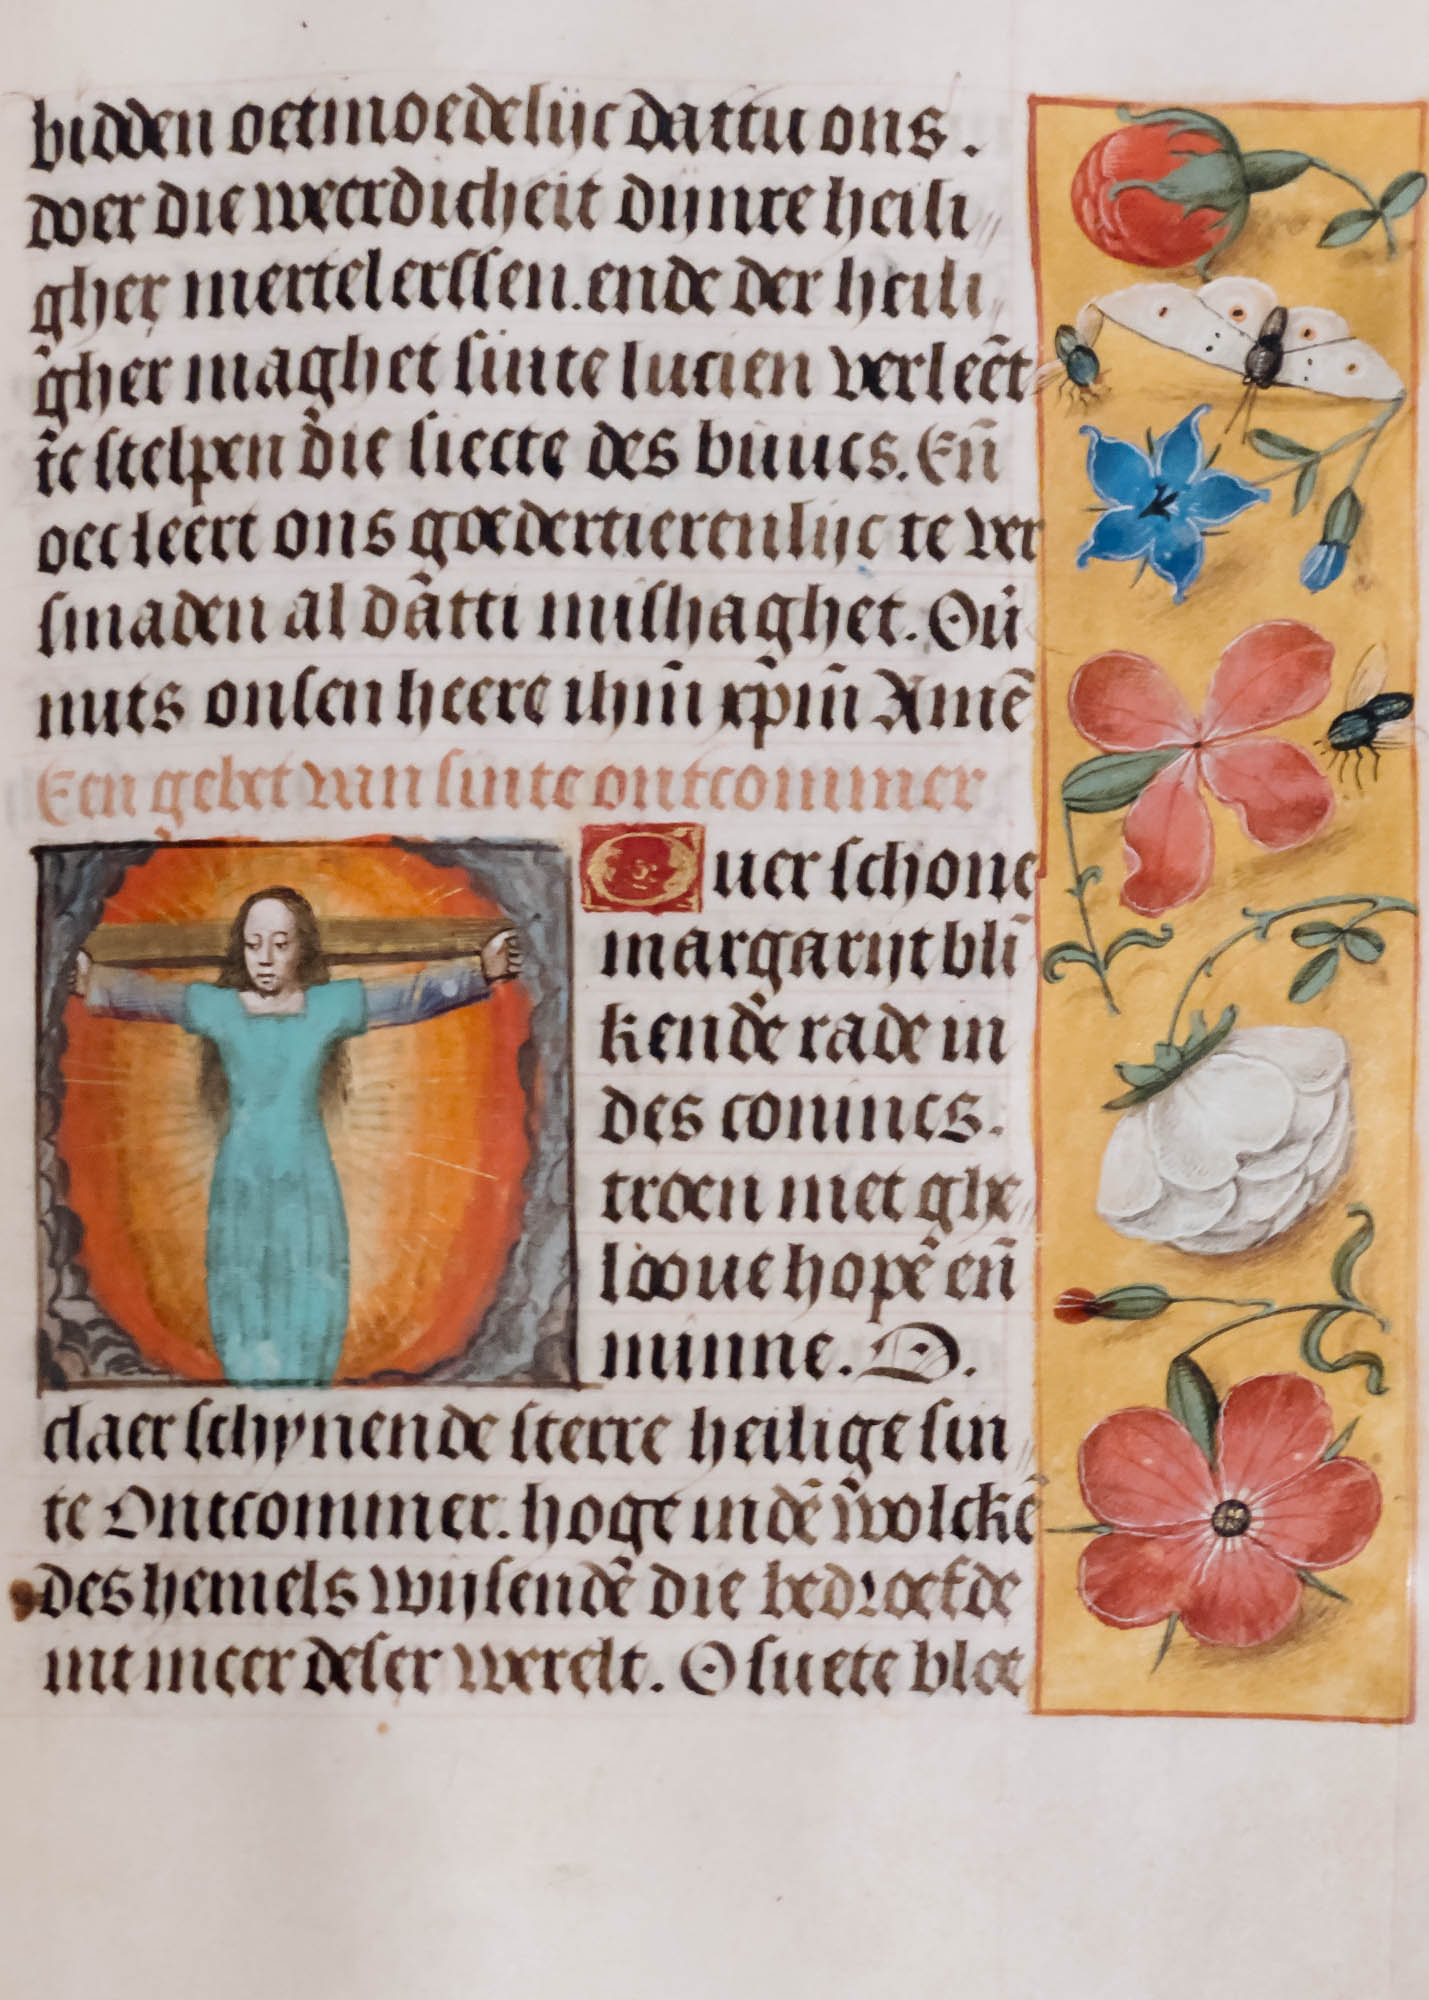 bidden oetmoedelijc dattu ons.
doer die weerdicheit dijnre heili
gher mertelerssen. ende der heili
gher maghet sinte lucien verleēt
te stelpen die siecte des buucs. Eñ
oec leert ons goedertierenlijc te ver
smaden al dātti mishaght. Oū
nuts onsen heere ihm̄ xpm̄ Amē
Een gebet van sinte ontcommer
Ouer schone
margarijt bli
kende rade in
des conincs.
troen met ghe
looue hopē eñ
minne. O.
claer schynende sterre heilige sin
te Ontcommer. hoge indē wolckē
des hemels wijsendē die bedroefde
int meer deser werelt. O suete bloe